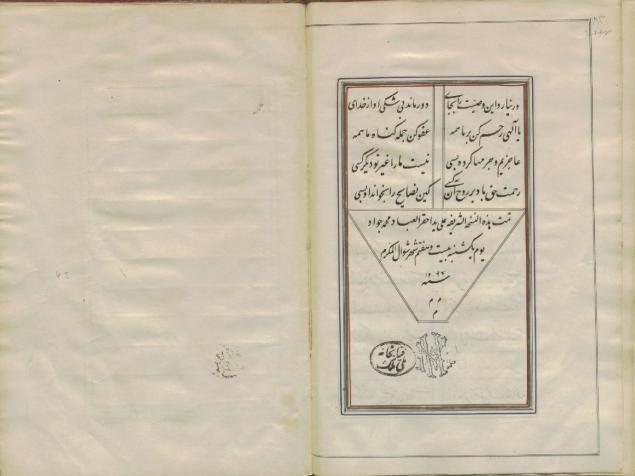 ور نیارد این وصیت را بجای دور ماند بی شکی او از خدای
یا الهی رحم کن بر ما همه عفو کن جمله گناه ما همه
عاجزیم و جرمها کرده بسی نیست ما را غیر تو دیگر کسی
رحمت حق باد بر روح آن کسی کین نصایح را بخواند او بسی
تمت هذه النسخة الشریفة علی ید احقر العباد محمد جواد
یوم یکشنبه بیست و هفتم شهر شوال المکرم
سنه
م م
م
کتابخانه
ملی ملک